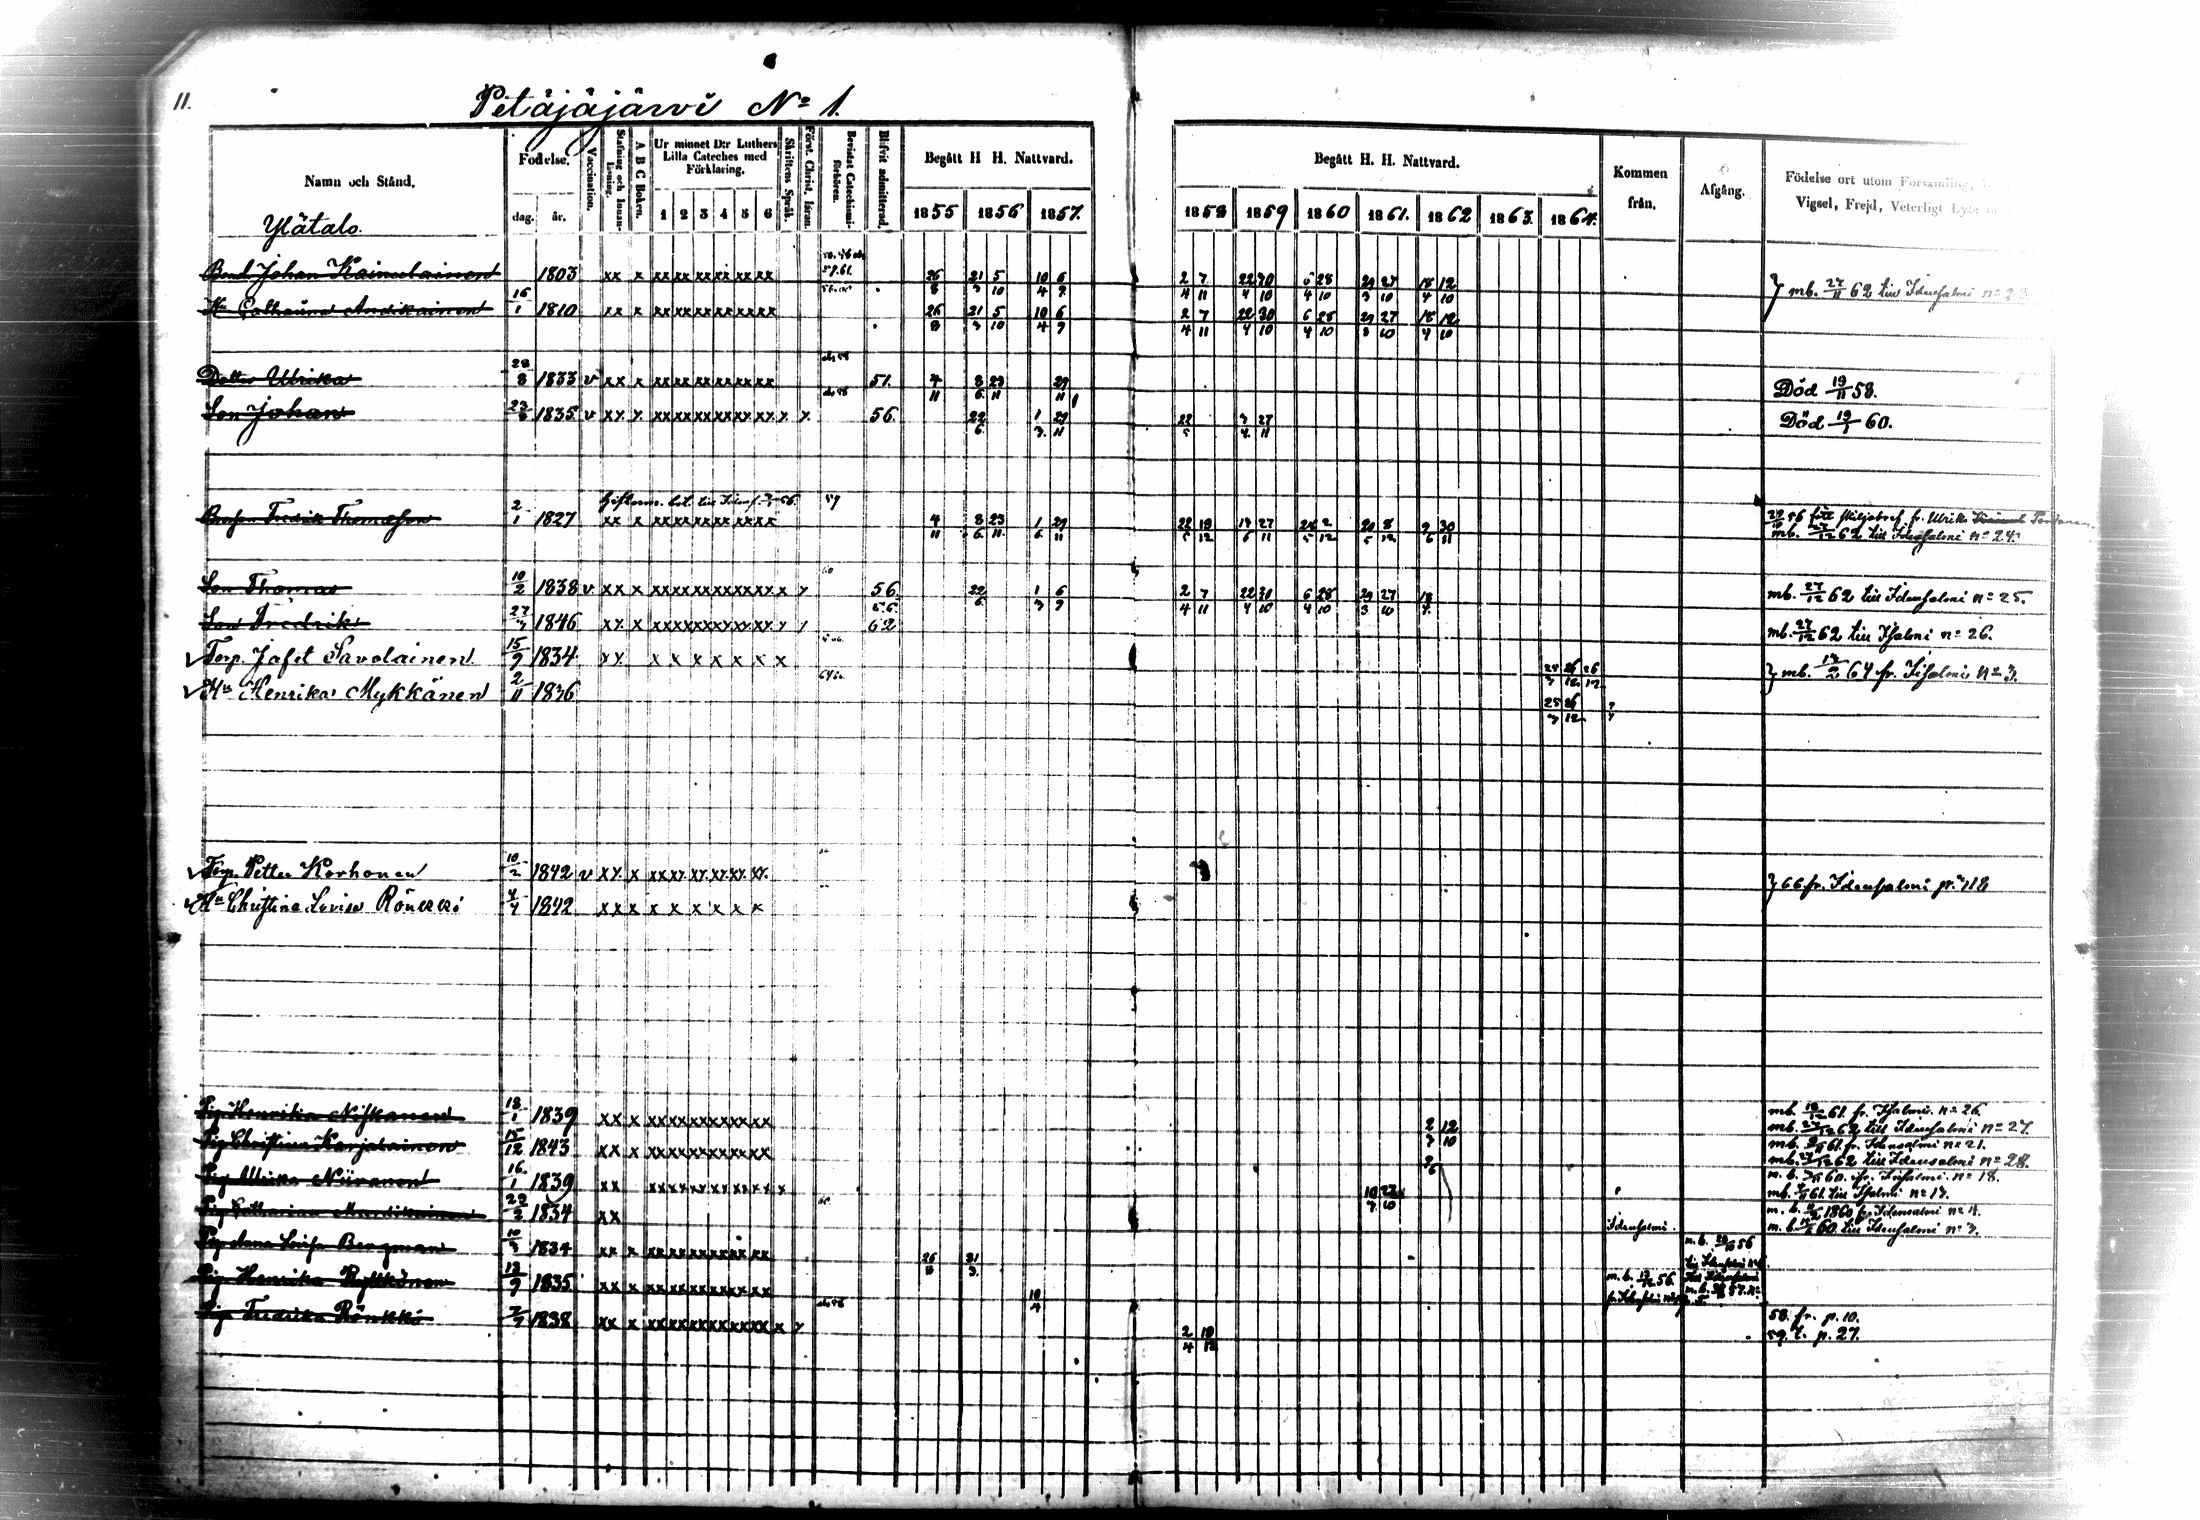 11.
Petäjäjärvi No 1.
Namn och Stånd.
Födelse.
dag. år.
Vaccination.
Stafning och Innan-läsning.
A B C Boken.
Ur minnet D:r Luthers Lilla Cateches med Förklaring.
1 2 3 4 5 6
Skriftens Språk.
Först. Christ. läran.
Bevistat Catechismi-förhören.
Blifvit admitterad.
Begått H H. Nattvard.
1855 1856 1857.
Begått H. H. Nattvard.
1858 1859 1860 1861. 1862 1863. 1864.
Kommen från.
Afgång.
Födelse ort utom Församling,
Vigsel, Frejd, Veterligt Lyte
Ylätalo.
Bond. Johan Kainulainen 1803 xx x xx xx xx xx xx xx 26/8 21/3 5/10 10/4 6/9 2/4 7/11 22/4 30/10 6/4 28/10 29/3 27/10 18/4 12/10 } mb. 27/11 62 till Idensalmi no 23
Hu Catharina Andikainen 16/1 1810 xx x xx xx xx xx xx xx 26/8 21/3 5/10 10/4 6/9 2/4 7/11 22/4 30/10 6/4 28/10 29/3 27/10 18/4 12/10
Dotter Ulrika 28/8 1833 v xx x xx xx xx xx xx xx 51. 4/11 8/6 23/11 29/11 Död 19/11 58.
Son Johan 1835 v xx x xx xx xx xx xx xx x x 56. 22/6 1/3 29/11 22/5 3/4 27/11 Död 19/1 60.
Fredrik Thomasson 2/1 1827 xx x xx xx xx xx xx xx 57 4/11 8/6 23/11 1/6 29/11 22/5 19/12 27/11 2/12 8/12 9/6 30/11 56 fått skiljobref fr. Ulrika
mb. 27/12 62 till Idensalmi no 24.
Son Thomas 10/2 1838 v xx x xx xx xx xx xx xx x x 56. 22/6 1/3 6/9 2/4 7/11 22/4 31/10 6/4 28/10 29/3 27/10 18/4 mb. 27/12 62 till Idensalmi no 25.
Son Fredrik 27/3 1846 xx x xx xx xx xx xx xx 62 mb. 27/12 62 till Isalmi no 26.
Torp. Jafet Savolainen 15/9 1834 xx x x x x x x x } mb. 13/2 64 fr. Isalmi No 3.
Hu Henrika Mykkänen 2/11 1836 25/3 26/12
Torp. Petter Korhonen 10/2 1842 v xx x xx xx xx xx xx xx } 66 fr. Idensalmi p. 118
Hu Christina Lovisa Rönkkö 4/4 1842 xx x x x x x x x
Pig. Henrika Niskanen 18/1 1839 xx x xx xx xx xx xx xx 2/3 12/10 mb. 18/12 61. fr. Isalmi. no 26.
mb. 27/12 62 till Idensalmi no 27.
Pig. Christina Karjalainen 15/12 1843 xx x xx xx xx xx xx xx mb. 61. fr. Idensalmi no 21.
mb. 62 till Idensalmi no 28.
Pig. Ulrika Niiranen 16/1 1839 xx xx xx xx xx xx xx x m. b. 60. fr. Isalmi. no 18.
mb. 61. till Isalmi no 13.
Pig. Catharina 29/2 1834 xx Idensalmi. m. b. 1860 fr. Idensalmi no 4.
m. b. 60. till Idensalmi no 3.
Pig. Anna Lovisa Bergman 10/3 1834 xx x xx xx xx xx xx xx 26/8 31/3 m. b. 56
Pig. Henrika Rytkönen 13/9 1835 xx x xx xx xx xx xx xx 10/4 m. b. 56.
Pig. Fredrika Rönkkö 1838 xx x xx xx xx xx xx xx x x 2/4 19/12 58. fr. p. 10.
59. t. p. 27.